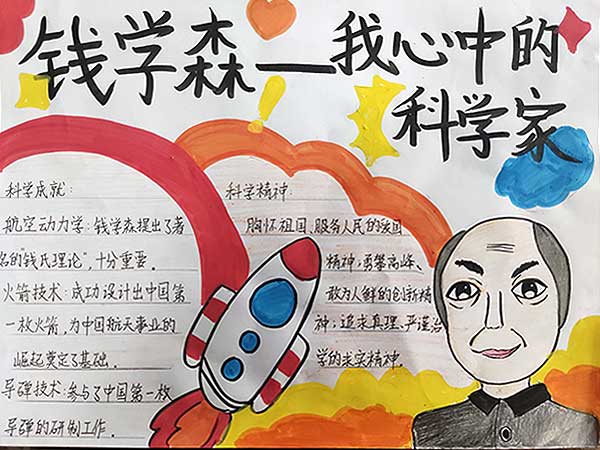 钱学森—我心中的
科学家
科学成就:
航空动力学:钱学森提出了著
名的"钱氏理论",十分重要。
火箭技术:成功设计出中国第
一枚火箭,为中国航天事业的
崛起奠定了基础.
导弹技术:参与了中国第一枚
导弹的研制工作.
科学精神
胸怀祖国、服务人民的爱国
精神;勇攀高峰、
敢为人鲜的创新精
神;追求真理、严谨治
学的求实精神.